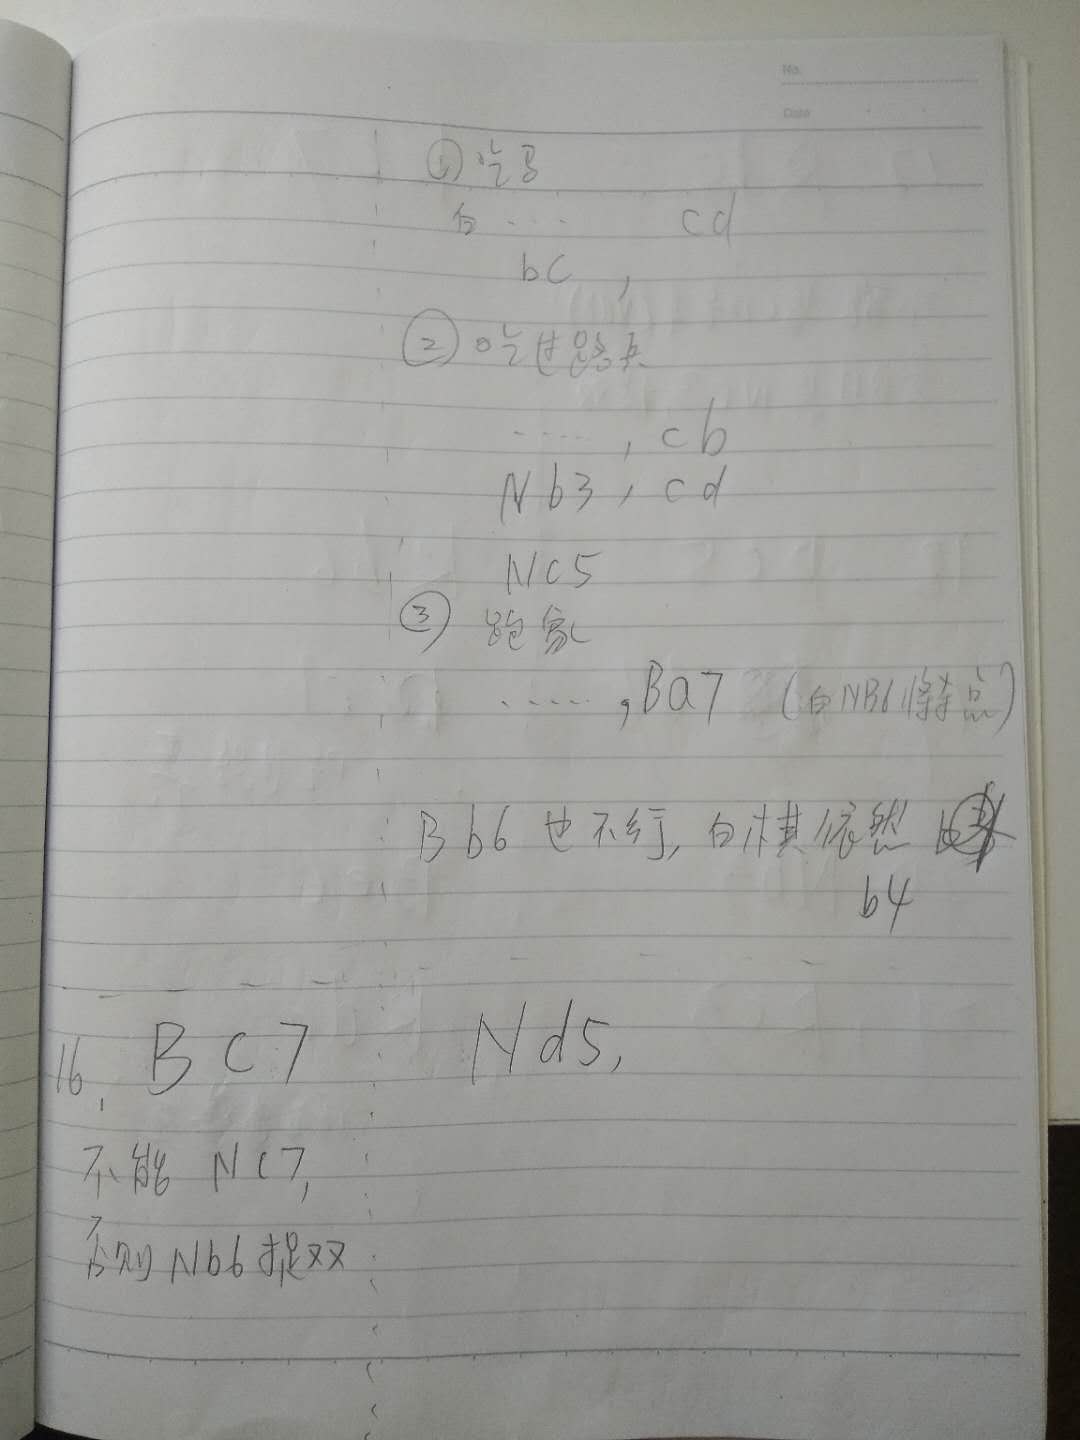 No.
Date
① 吃马
白 ···· cd
bc ,
② 吃过路兵
····· , cb
Nb3 , cd
Nc5
③ 跑象
····· , Ba7 (白NB6将等
Bb6 也不行, 白棋依然
b4
16, BC7 Nd5,
不能 NC7,
否则 Nb6 捉双